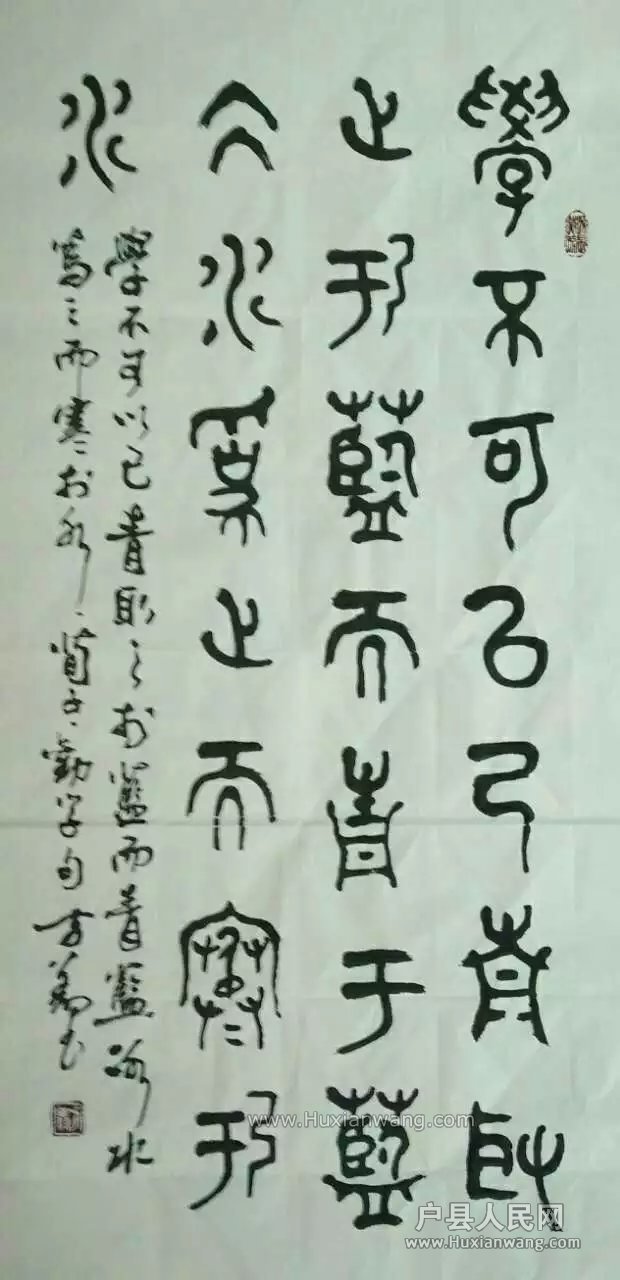 學不可以已青取
之於藍而青于藍
仌水為之而寒於
水
學不可以已青取之於藍而青藍冰水
為之而寒於水荀子勸學句方书
www.Huxianwang.com
户县人民网
www.Huxianwang.com